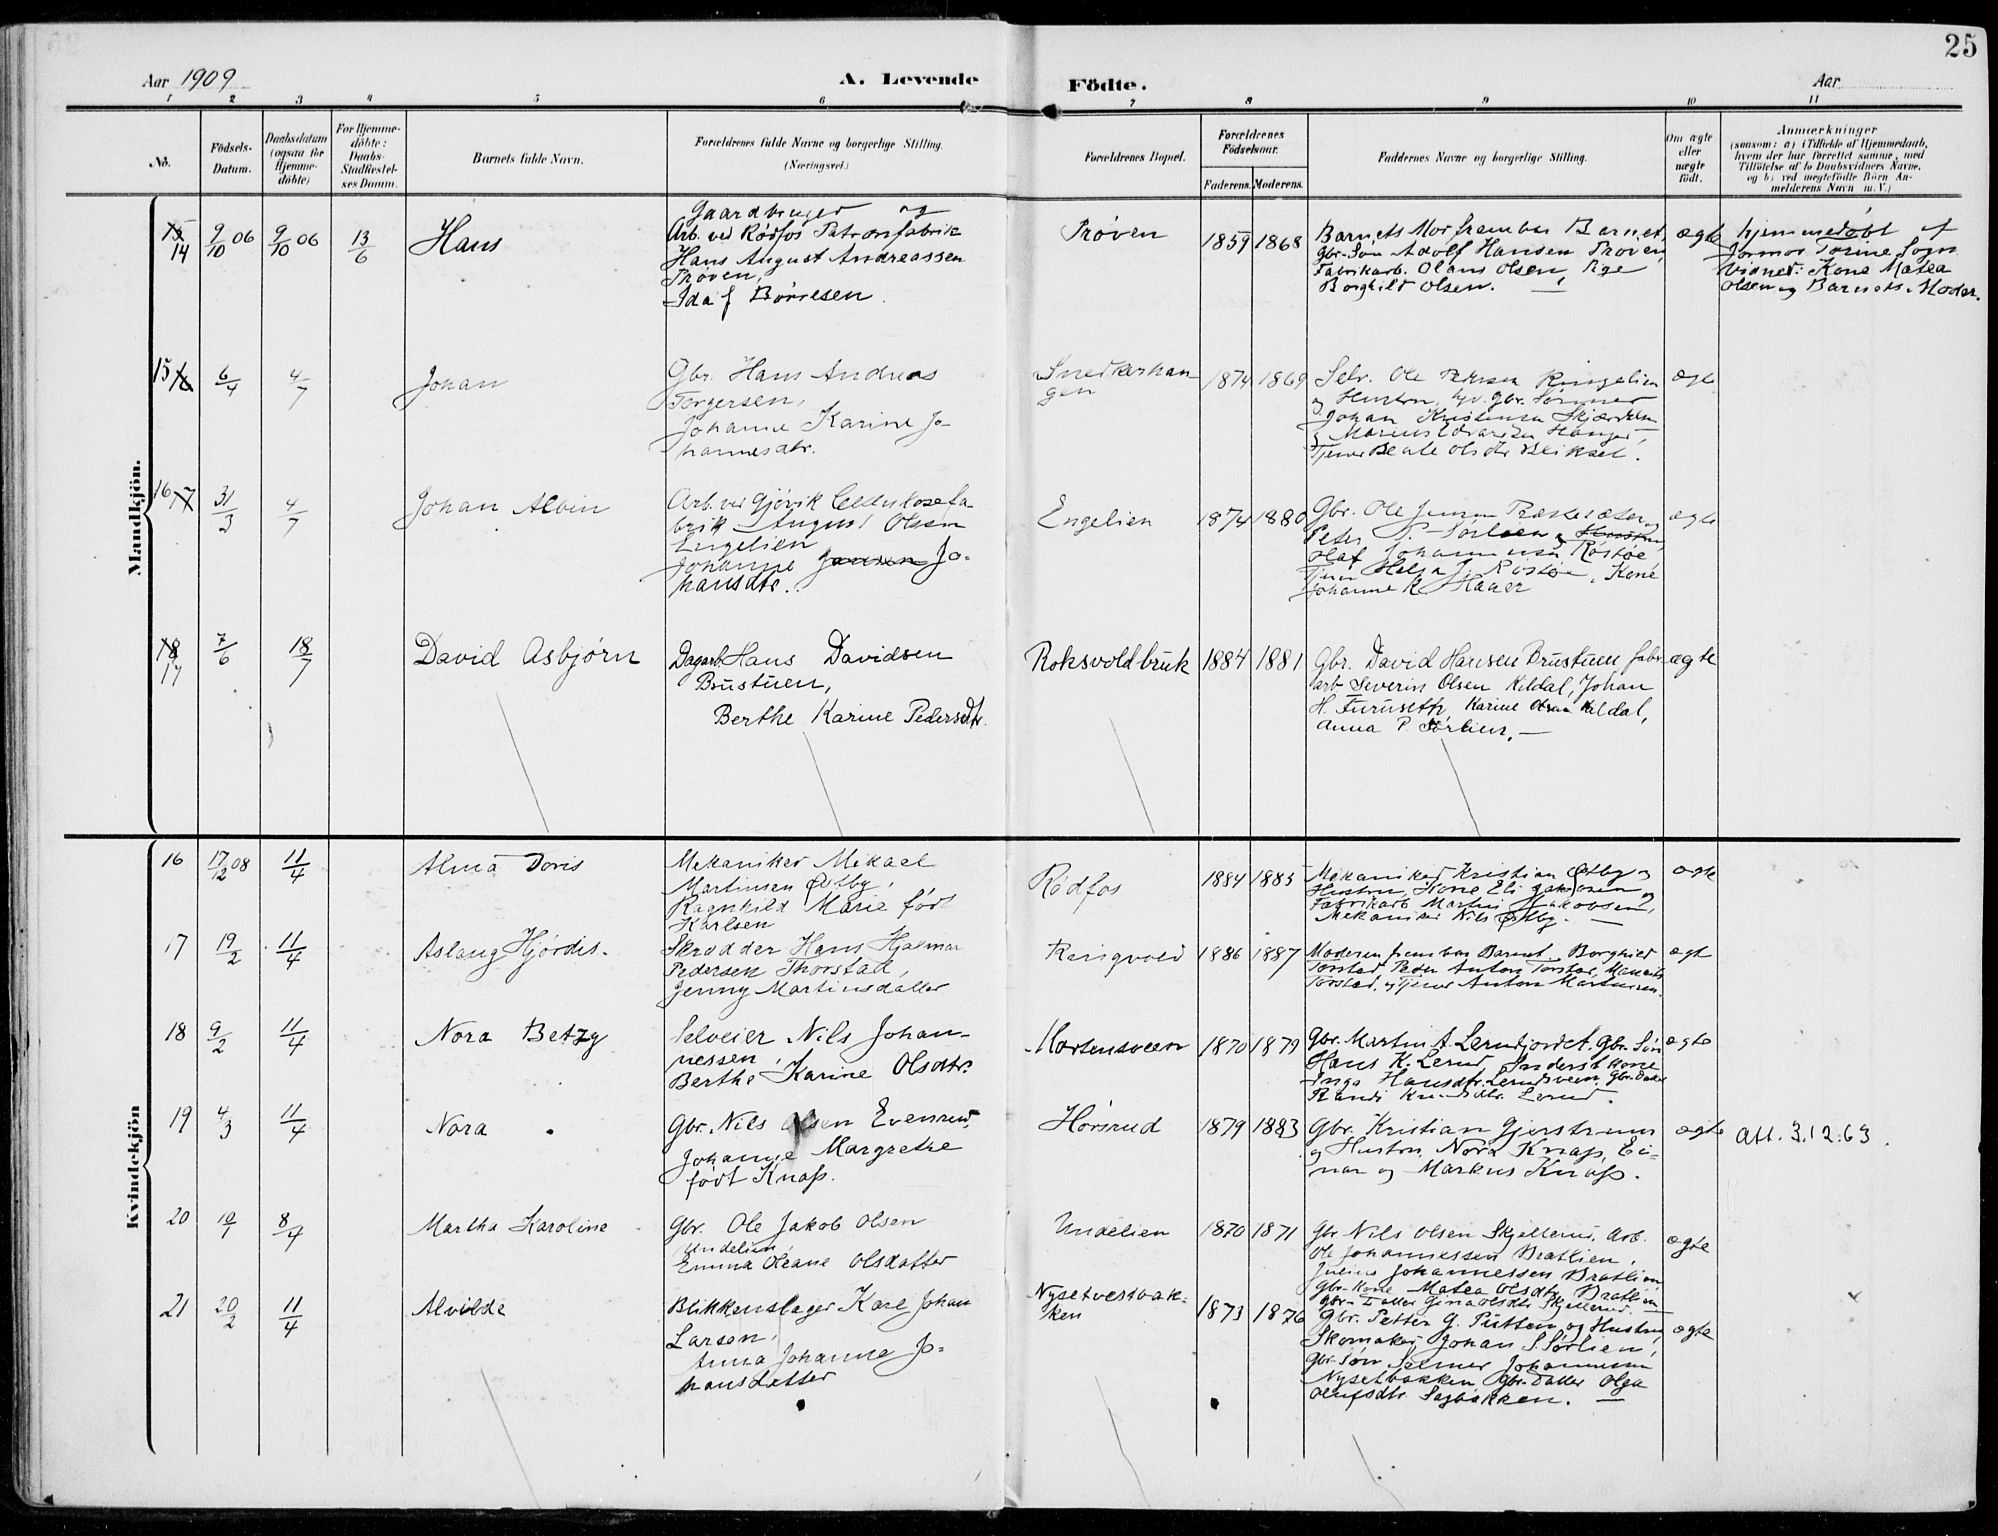 25
Aar 1909
A. Levende
Födte.
Aar
1 2 3 4 5 6 7 8 9 10 11
No.
Födsels-Datum.
Daabsdatum (ogsaa for Hjemme-döbte)
For Hjemme-döbte: Daabs-Stadfæstel-ses Datum.
Barnets fulde Navn.
Forældrenes fulde Navne og borgerlige Stilling.
(Næringsvei.)
Forældrenes Bopæl.
Forældrenes Födselsaar.
Faderens. Moderens.
Faddernes Navne og borgerlige Stilling.
Om ægte eller uægte födt.
Anmærkninger
(saasom: a) i Tilfælde af Hjemmedaab,
hvem der har forrettet samme, med
Tilföielse af to Daabsvidners Navne,
og b) ved uegtefödte Börn An-
melderens Navn m. V.)
Mandkjön.
15
14
9/10 06
9/10 06
13/6
Hans
Gaardbruger og
Arb. ved Rødfos Patronfabrik
Hans August Andreassen
Prøven,
Ida f Børresen.
Prøven
1859 1868
Barnets Mor frembar Barnet,
Gbr. Søn Adolf Hansen Prøven,
Fabrikarb. Olaus Olsen, Pige
Borghild Olsen.
ægte
hjemmedøbt af
Jormor Torine Sogn
Vidner: Kone Matea
Olsen og Barnets Moder.
15 16
6/4
4/7
Johan
Gbr. Hans Andreas
Torgersen,
Johanne Karine Jo-
hannesdtr.
Snedkerhau-
gen
1874 1869
Selv. Ole Ringelien
og Hustru, Gbr. Sønner
Johan Kristiansen
Marius
Beate Olsdtr
ægte
16 17
31/3
4/7
Johan Albin
Arb. ved Gjøvik Cellulosefa-
brik August Olsen
Engelien
Johanne Jansen Jo-
hansdtr.
Engelien
1874 1880
Gbr. Ole Jensen
Peter P. Sørlien og Hustru,
Olaf Johannesen Røstøe
Helga J. Røstøe, Kone
Johanne K. Hager
ægte
18
17
7/6
18/7
David Asbjørn
Dagarb Hans Davidsen
Brustuen,
Berthe Karine Pedersdtr.
Roksvoldbruk
1884 1881
Gbr. David Hansen Brustuen fabr
arb Severin Olsen Kildal, Johan
H. Furuseth, Karine Olsen Kildal,
Anna P. Sørlien.
ægte
Kvindekjön
16
17/12 08
11/4
Alma Doris
Mekaniker Mikael
Martinsen Østby,
Ragnhild Marie født
Karlsen
Rødfos
1884 1885
Mekaniker Kristian Østby og
Hustru, Kone Eli Jakobsen og
Fabrikarb Martin Jakobsen,
Mekaniker Nils Østby.
ægte
17
19/2
11/4
Aslaug Hjørdis.
Skrædder Hans Hjalmar
Pedersen Thorstad,
Jenny Martinsdatter
Ringvold
1886 1887
Moderen frembar Barnet. Borghild
Torstad, Peder Anton Torstad,
Torstad, og Tjener Anton Martinsen.
ægte
18
9/2
11/4
Nora Betzy
Selveier Nils Johan-
nessen,
Berthe Karine Olsdtr.
Mortensveen
1870 1879
Gbr. Martin A. Lerudjordet. Gbr. Søn
Hans K. Lerud, Inderst kone
Inga Hansdtr. Lerudsveen, Gbr. Dater
Randi Knudsdtr. Lerud.
ægte
19
4/3
11/4
Nora
Gbr. Nils Olsen Evenrud,
Johanne Margrethe
født Knaps.
Hørsrud
1879 1883
Gbr. Kristian Gjerstrum
og Hustru, Nora Knaps, Ei-
nar og Markus Knaps.
ægte
Att. 3.12.63.
20
10/1
8/4
Martha Karoline
Gbr. Ole Jakob Olsen
Undelien,
Emma Oleane Olsdatter
Undelien
1870 1871
Gbr Nils Olsen Skjellerud, Arb.
Ole Johannessen Bratlien,
Julius Johannessen Bratlien,
Gbr. Kone Matea Olsdtr. Bratlien
Gbr. Datter Gina Olsdtr Skjellerud.
ægte
21
20/2
11/4
Alvilde
Blikkenslager Karl Johan
Larsen,
Anna Johanne Jo-
hansdatter
Nysetvestbak-
ken
1873 1876
Gbr. Petter G. Pütten og Hustru,
Skomaker Johan S. Sørlien,
Gbr. Søn Selmer Johannesen
Nysetbakken, Gbr. Datter Olga
Olufsdtr Sagbakken.
ægte